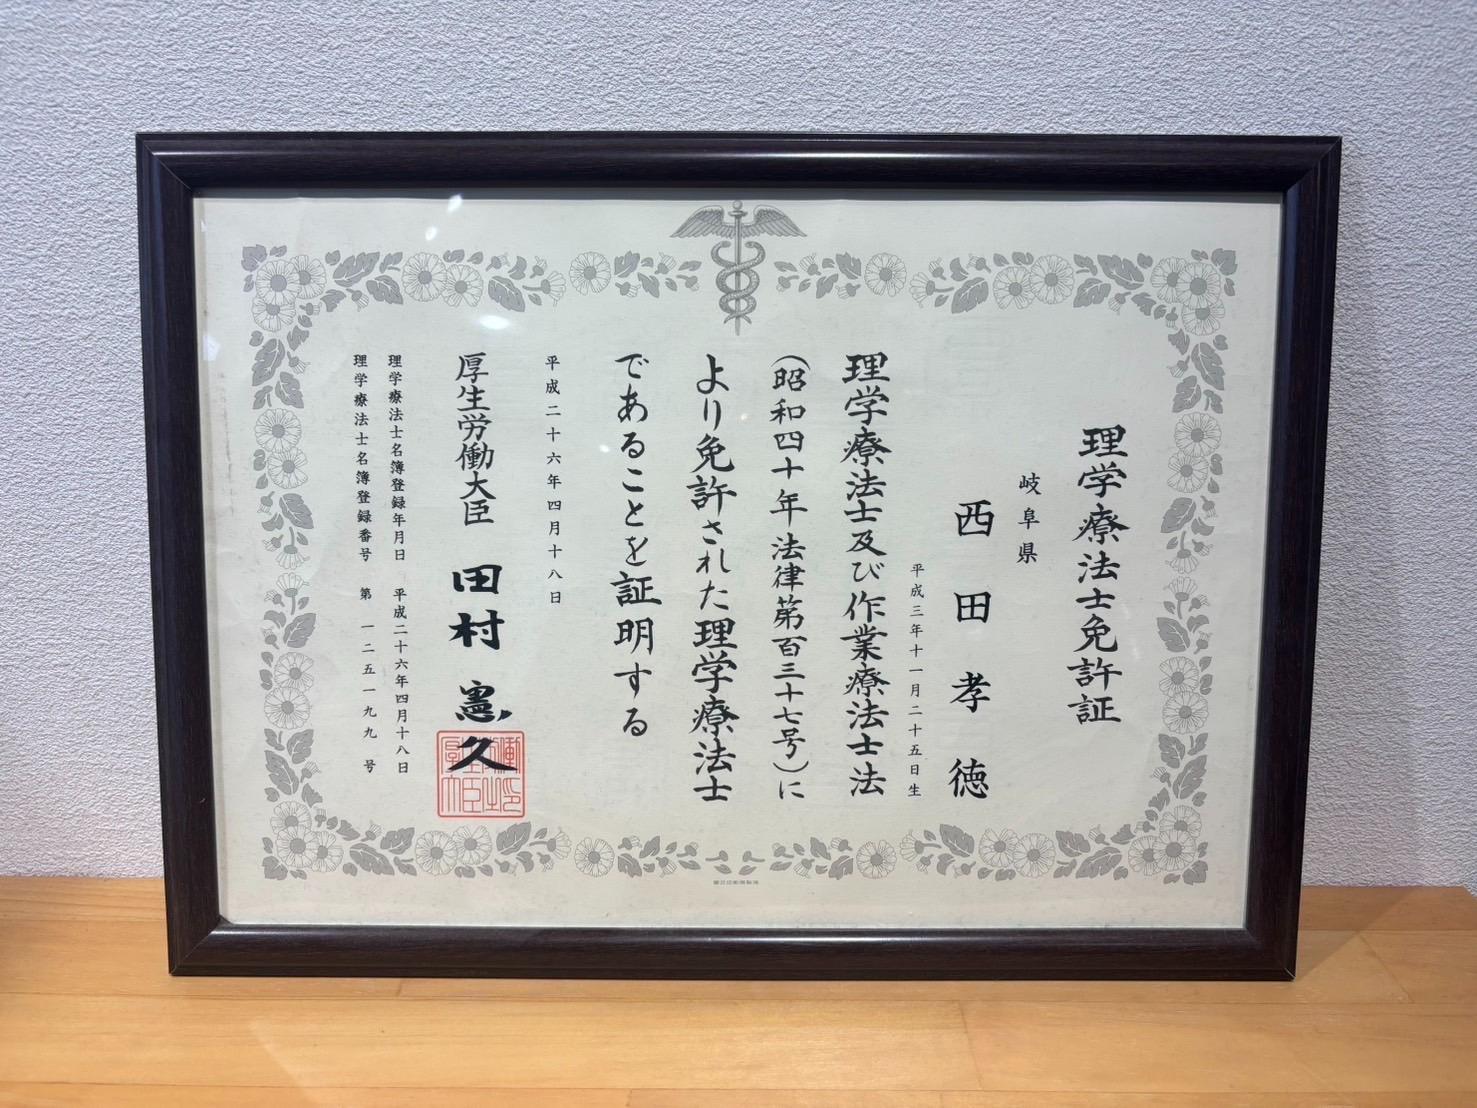 理学療法士免許証
岐阜県
西田孝徳
平成三年十一月二十五日生
理学療法士及び作業療法士法
（昭和四十年法律第百三十七号）に
より免許された理学療法士
であることを証明する
平成二十六年四月十八日
厚生労働大臣 田村憲久
理学療法士名簿登録年月日 平成二十六年四月十八日
理学療法士名簿登録番号 第一二五一九九号